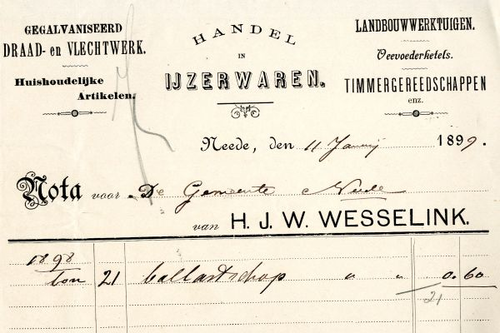 GEGALVANISEERD
DRAAD- en VLECHTWERK.
Huishoudelijke
Artikelen.
HANDEL
IN
IJZERWAREN.
LANDBOUWWERKTUIGEN.
Veevoederketels.
TIMMERGEREEDSCHAPPEN
enz.
Neede, den 11 Januarij 1899.
Nota voor De Gemeente Neede
van H. J. W. WESSELINK.
1898
21 ballastschop " " 0.60
21